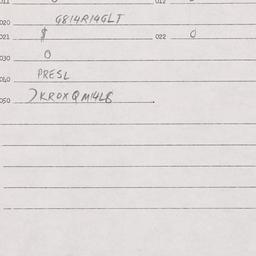 011 012
020 G814R14GLT
021 $ 022 0
030 0
060 PRESL
050 )KROXQM14L8